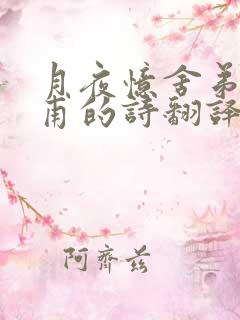 月夜憶舍弟
甫的詩翻譯
阿齊茲